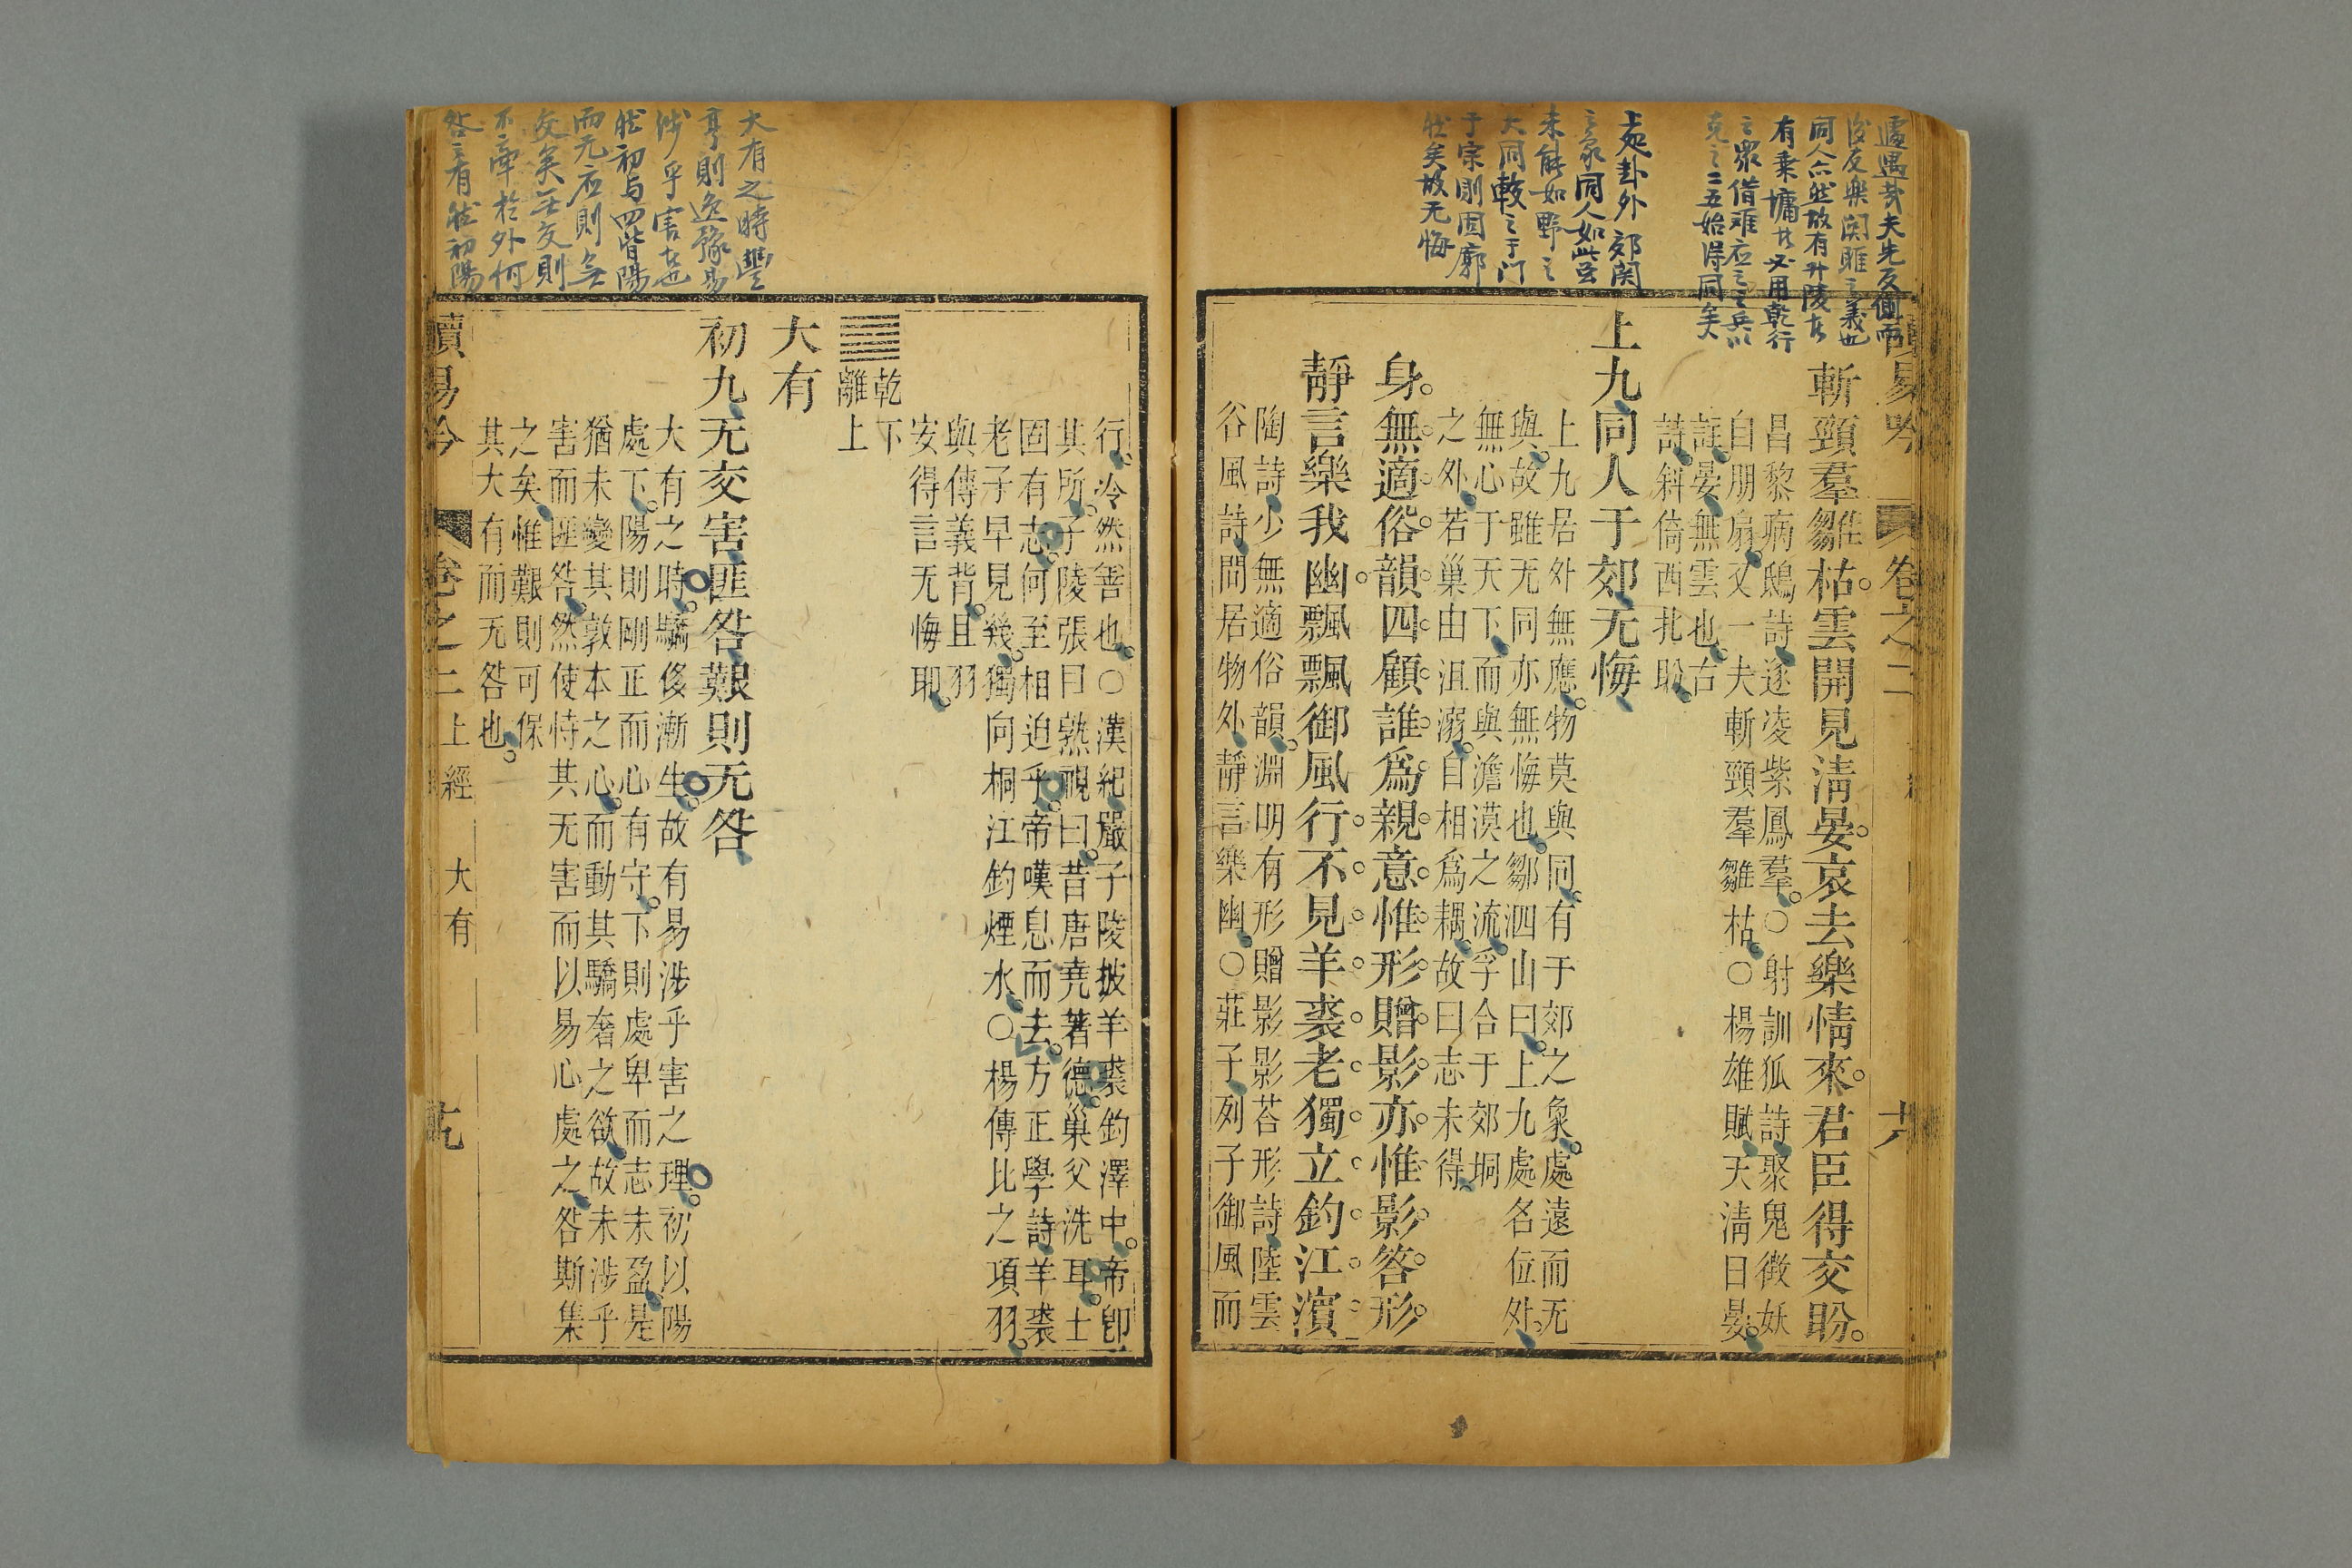 遽遇哉夫先反側而
後友樂関雎之義也
同人亦然故有升陵者
有乗墉者必用乾行
之衆借难右之之兵以
克之二五始得同矣
上處卦外郊関
之象同人如此豈
未能如野之
大同較之于门
于宗則固廓
然矣故无悔
讀易吟
卷之二
六
斬頸羣雛枯雲開見淸晏哀去樂情來君臣得交盼
昌黎病鴟詩遂凌紫鳳羣〇射訓狐詩聚鬼徴妖
自朋扇又一夫斬頸羣雛枯〇楊雄賦天淸日晏
註晏無雲也古
詩斜倚西北盼
上九同人于郊无悔
上九居外無應物莫與同有于郊之象處遠而无
與故雖无同亦無悔也鄒泗山曰上九處名位外
無心于天下而與澹漠之流孚合于郊坰
之外若巢由沮溺自相爲耦故曰志未得
身無適俗韻四顧誰爲親意惟形贈影亦惟影答形
靜言樂我幽飄飄御風行不見羊裘老獨立釣江濱
陶詩少無適俗韻淵明有形贈影影荅形詩陸雲
谷風詩閒居物外靜言樂幽〇莊子列子御風而
行冷然善也〇漢紀嚴子陵披羊裘釣澤中帝卽
其所子陵張目熟視曰昔唐堯著德巢父洗耳士
固有志何至相迫乎帝嘆息而去方正學詩羊裘
老子早見幾獨向桐江釣煙水〇楊傳比之項羽
與傳義背且羽
安得言无悔耶
乾下
離上
大有
初九无交害匪咎艱則无咎
大有之時驕侈漸生故有易涉乎害之理初以陽
處下陽則剛正而心有守下則處卑而志未盈是
猶未變其敦本之心而動其驕奢之欲故未涉乎
害而匪咎然使恃其无害而以易心處之咎斯集
之矣惟艱則可保
其大有而无咎也
大有之時豐
亨則逸豫易
涉乎害者也
然初与四皆陽
而无应則無
交矣无交則
不牽於外何
咎之有然初陽
讀易吟
卷之二
上經
大有